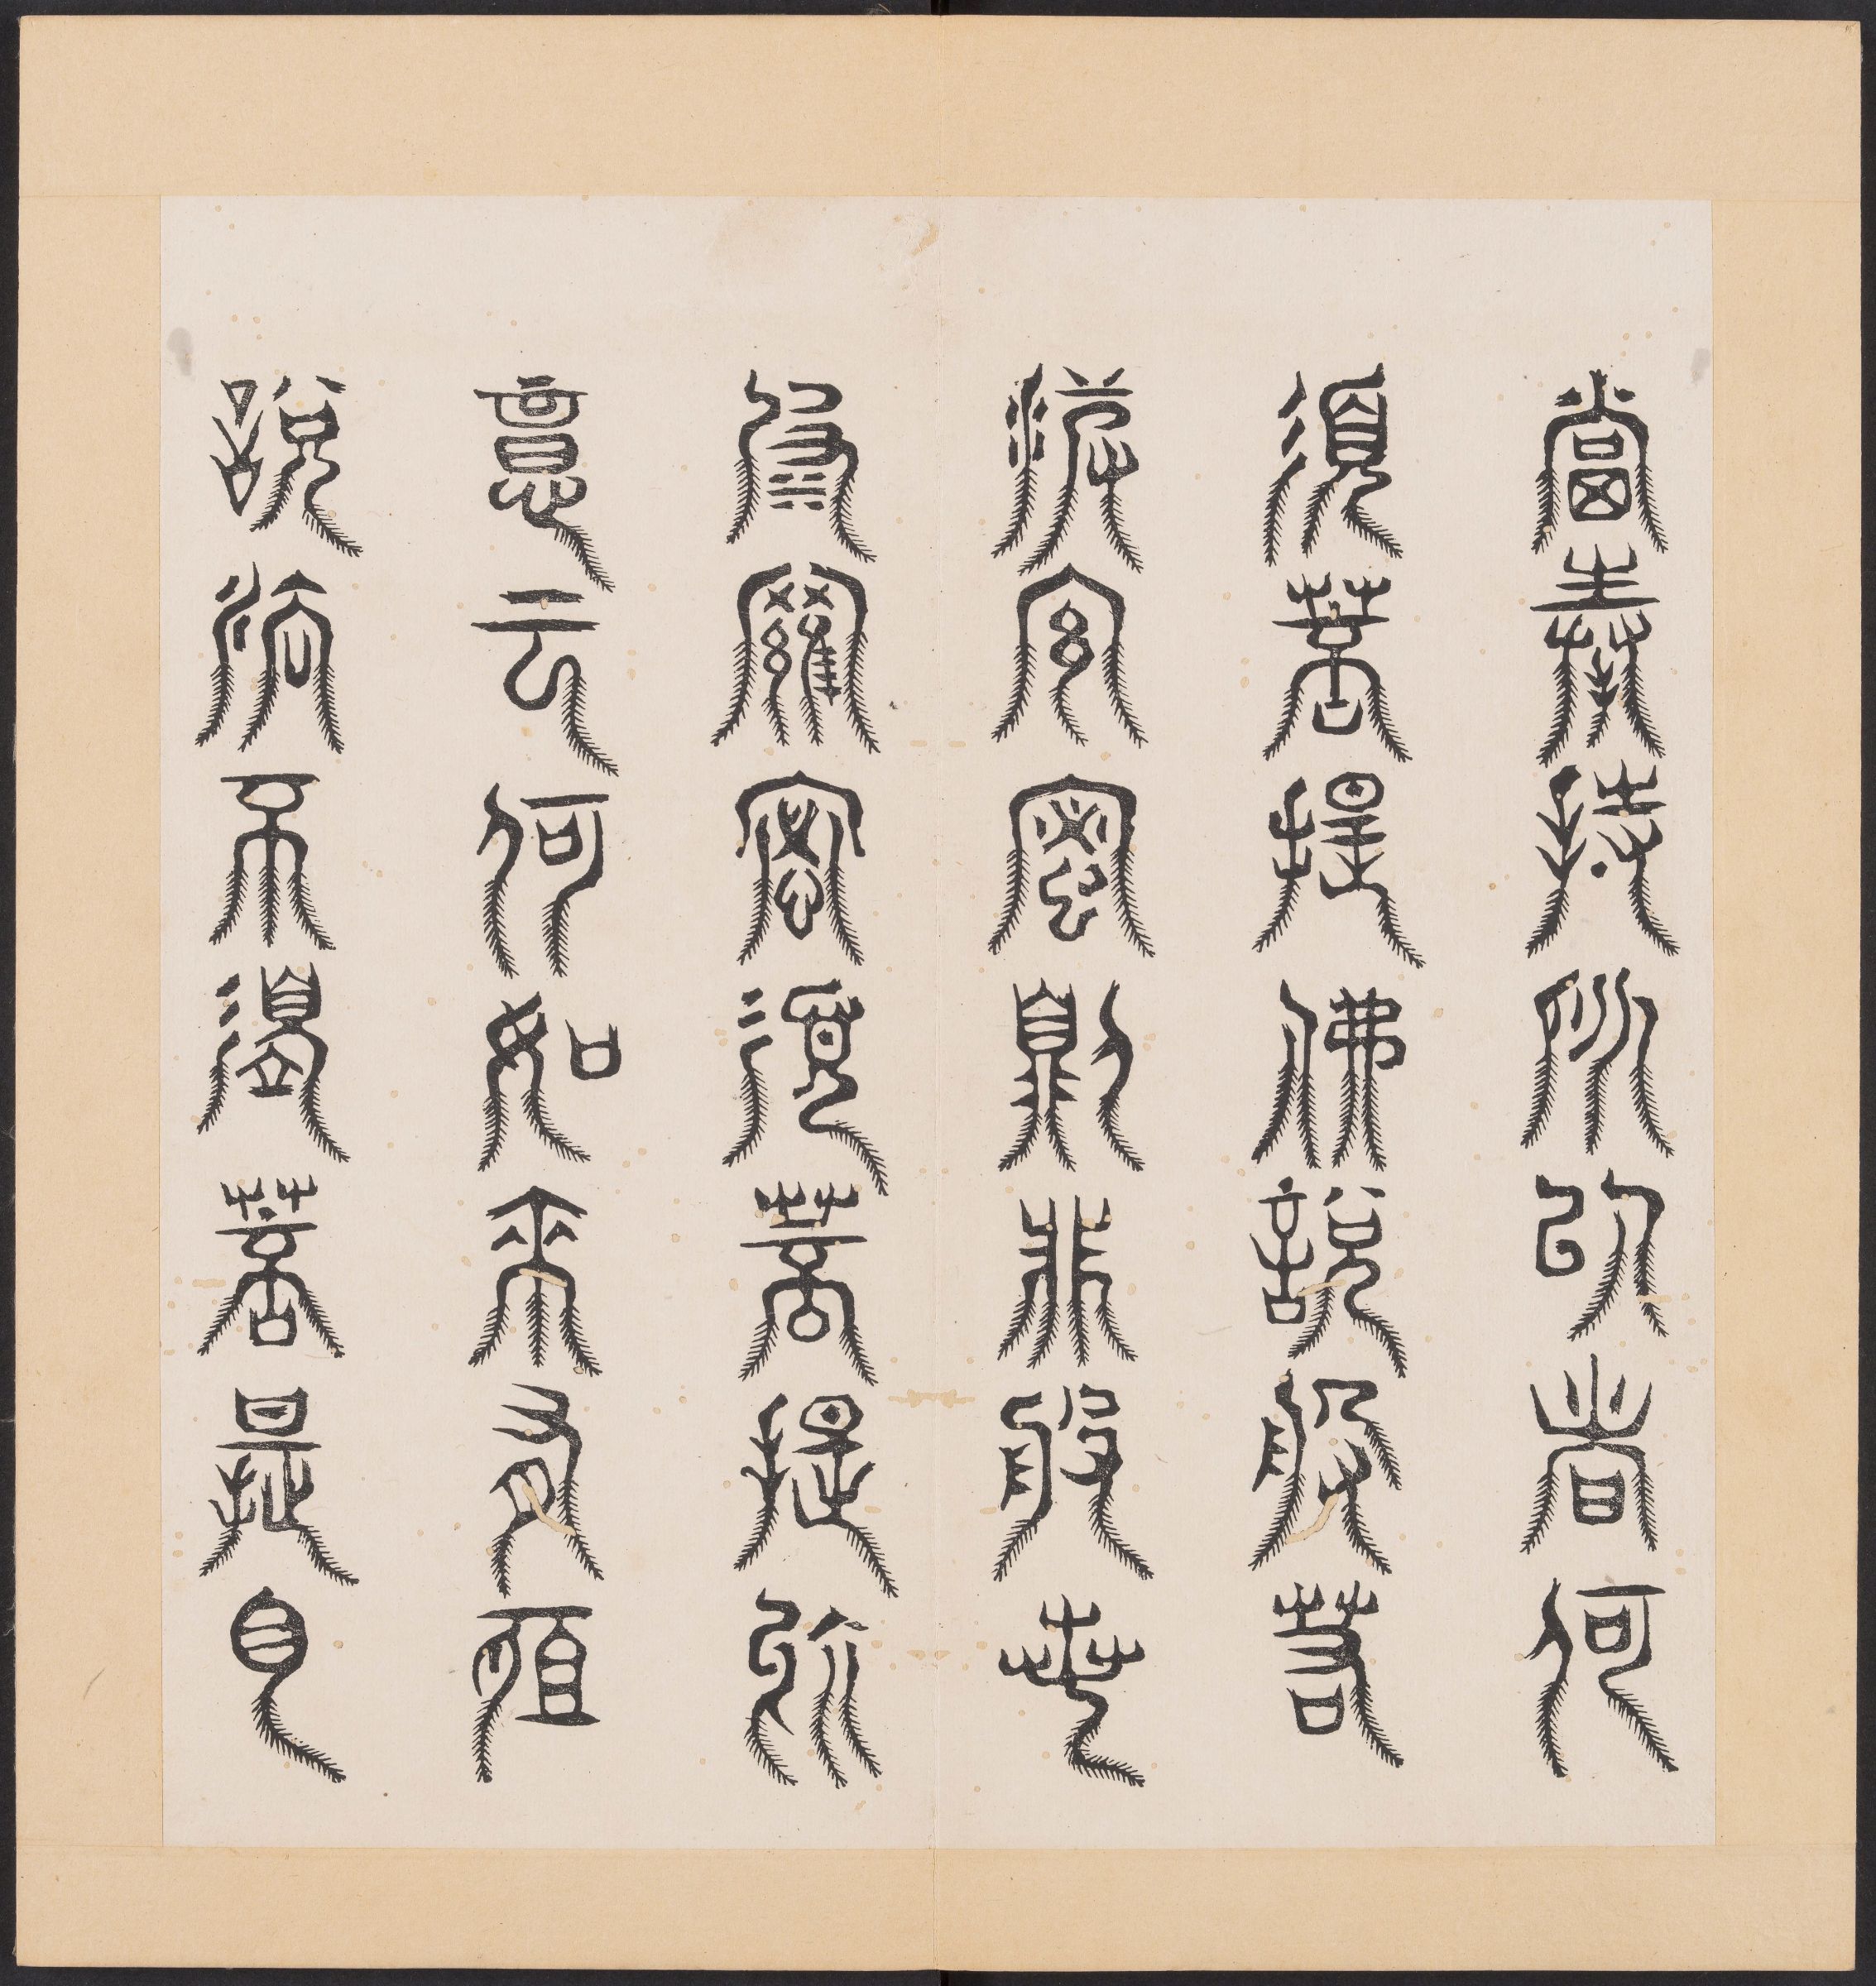 當奉持所以者何
須菩提佛說般若
波羅蜜則非般若
波羅蜜須菩提於
意云何如來有所
說法不須菩提白